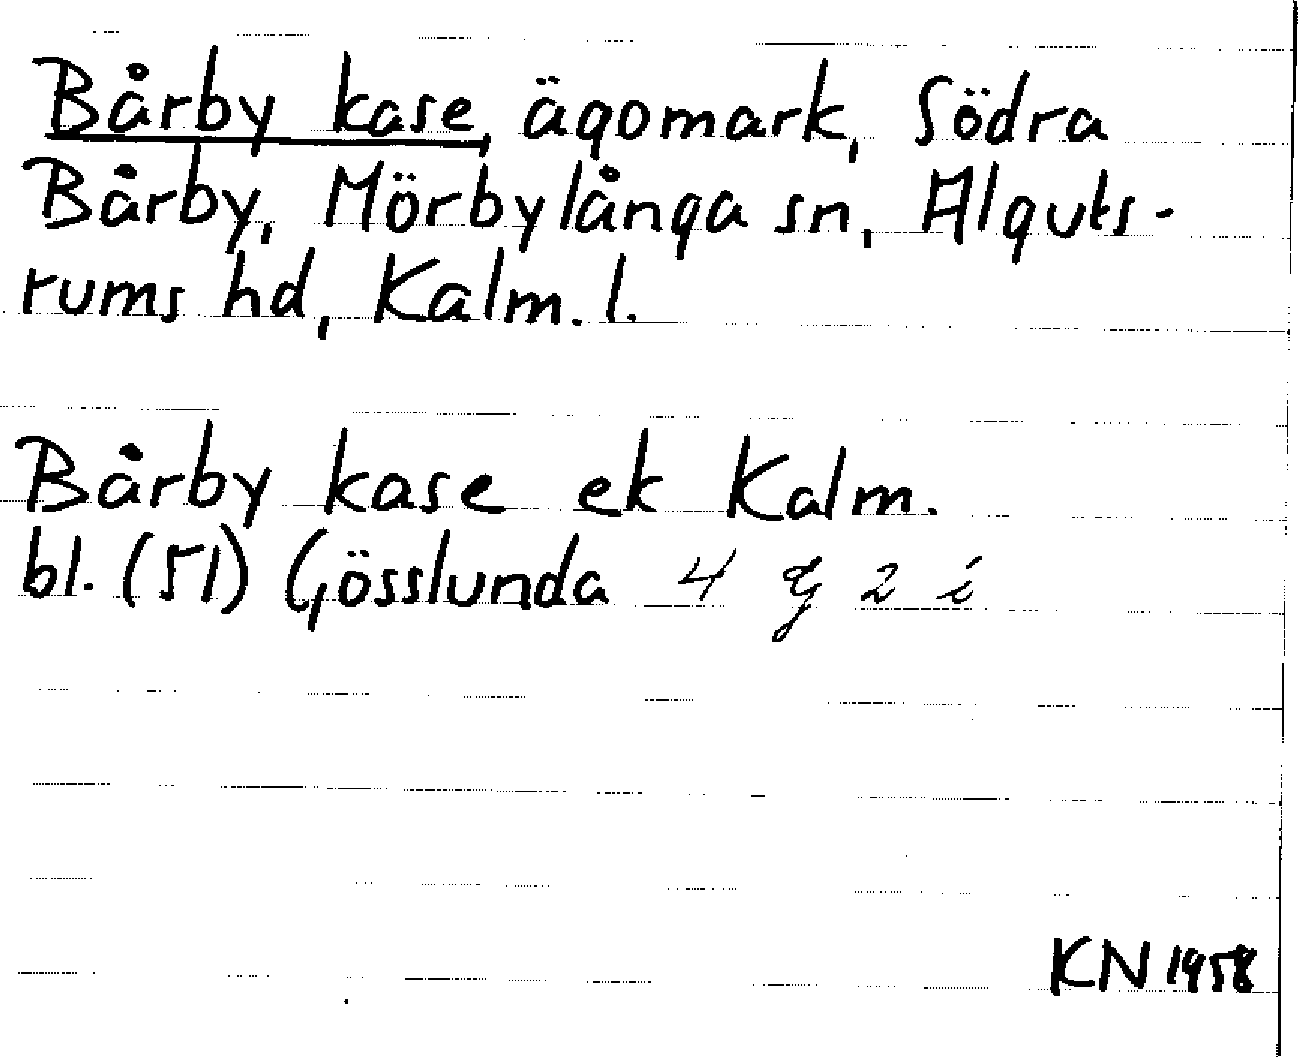 Bårby kase, ägomark, Södra
Bårby, Mörbylånga sn, Alguts-
rums hd, Kalm. l.
Bårby kase ek Kalm.
bl. (51) Gösslunda 4 G 2 i
KN 1958